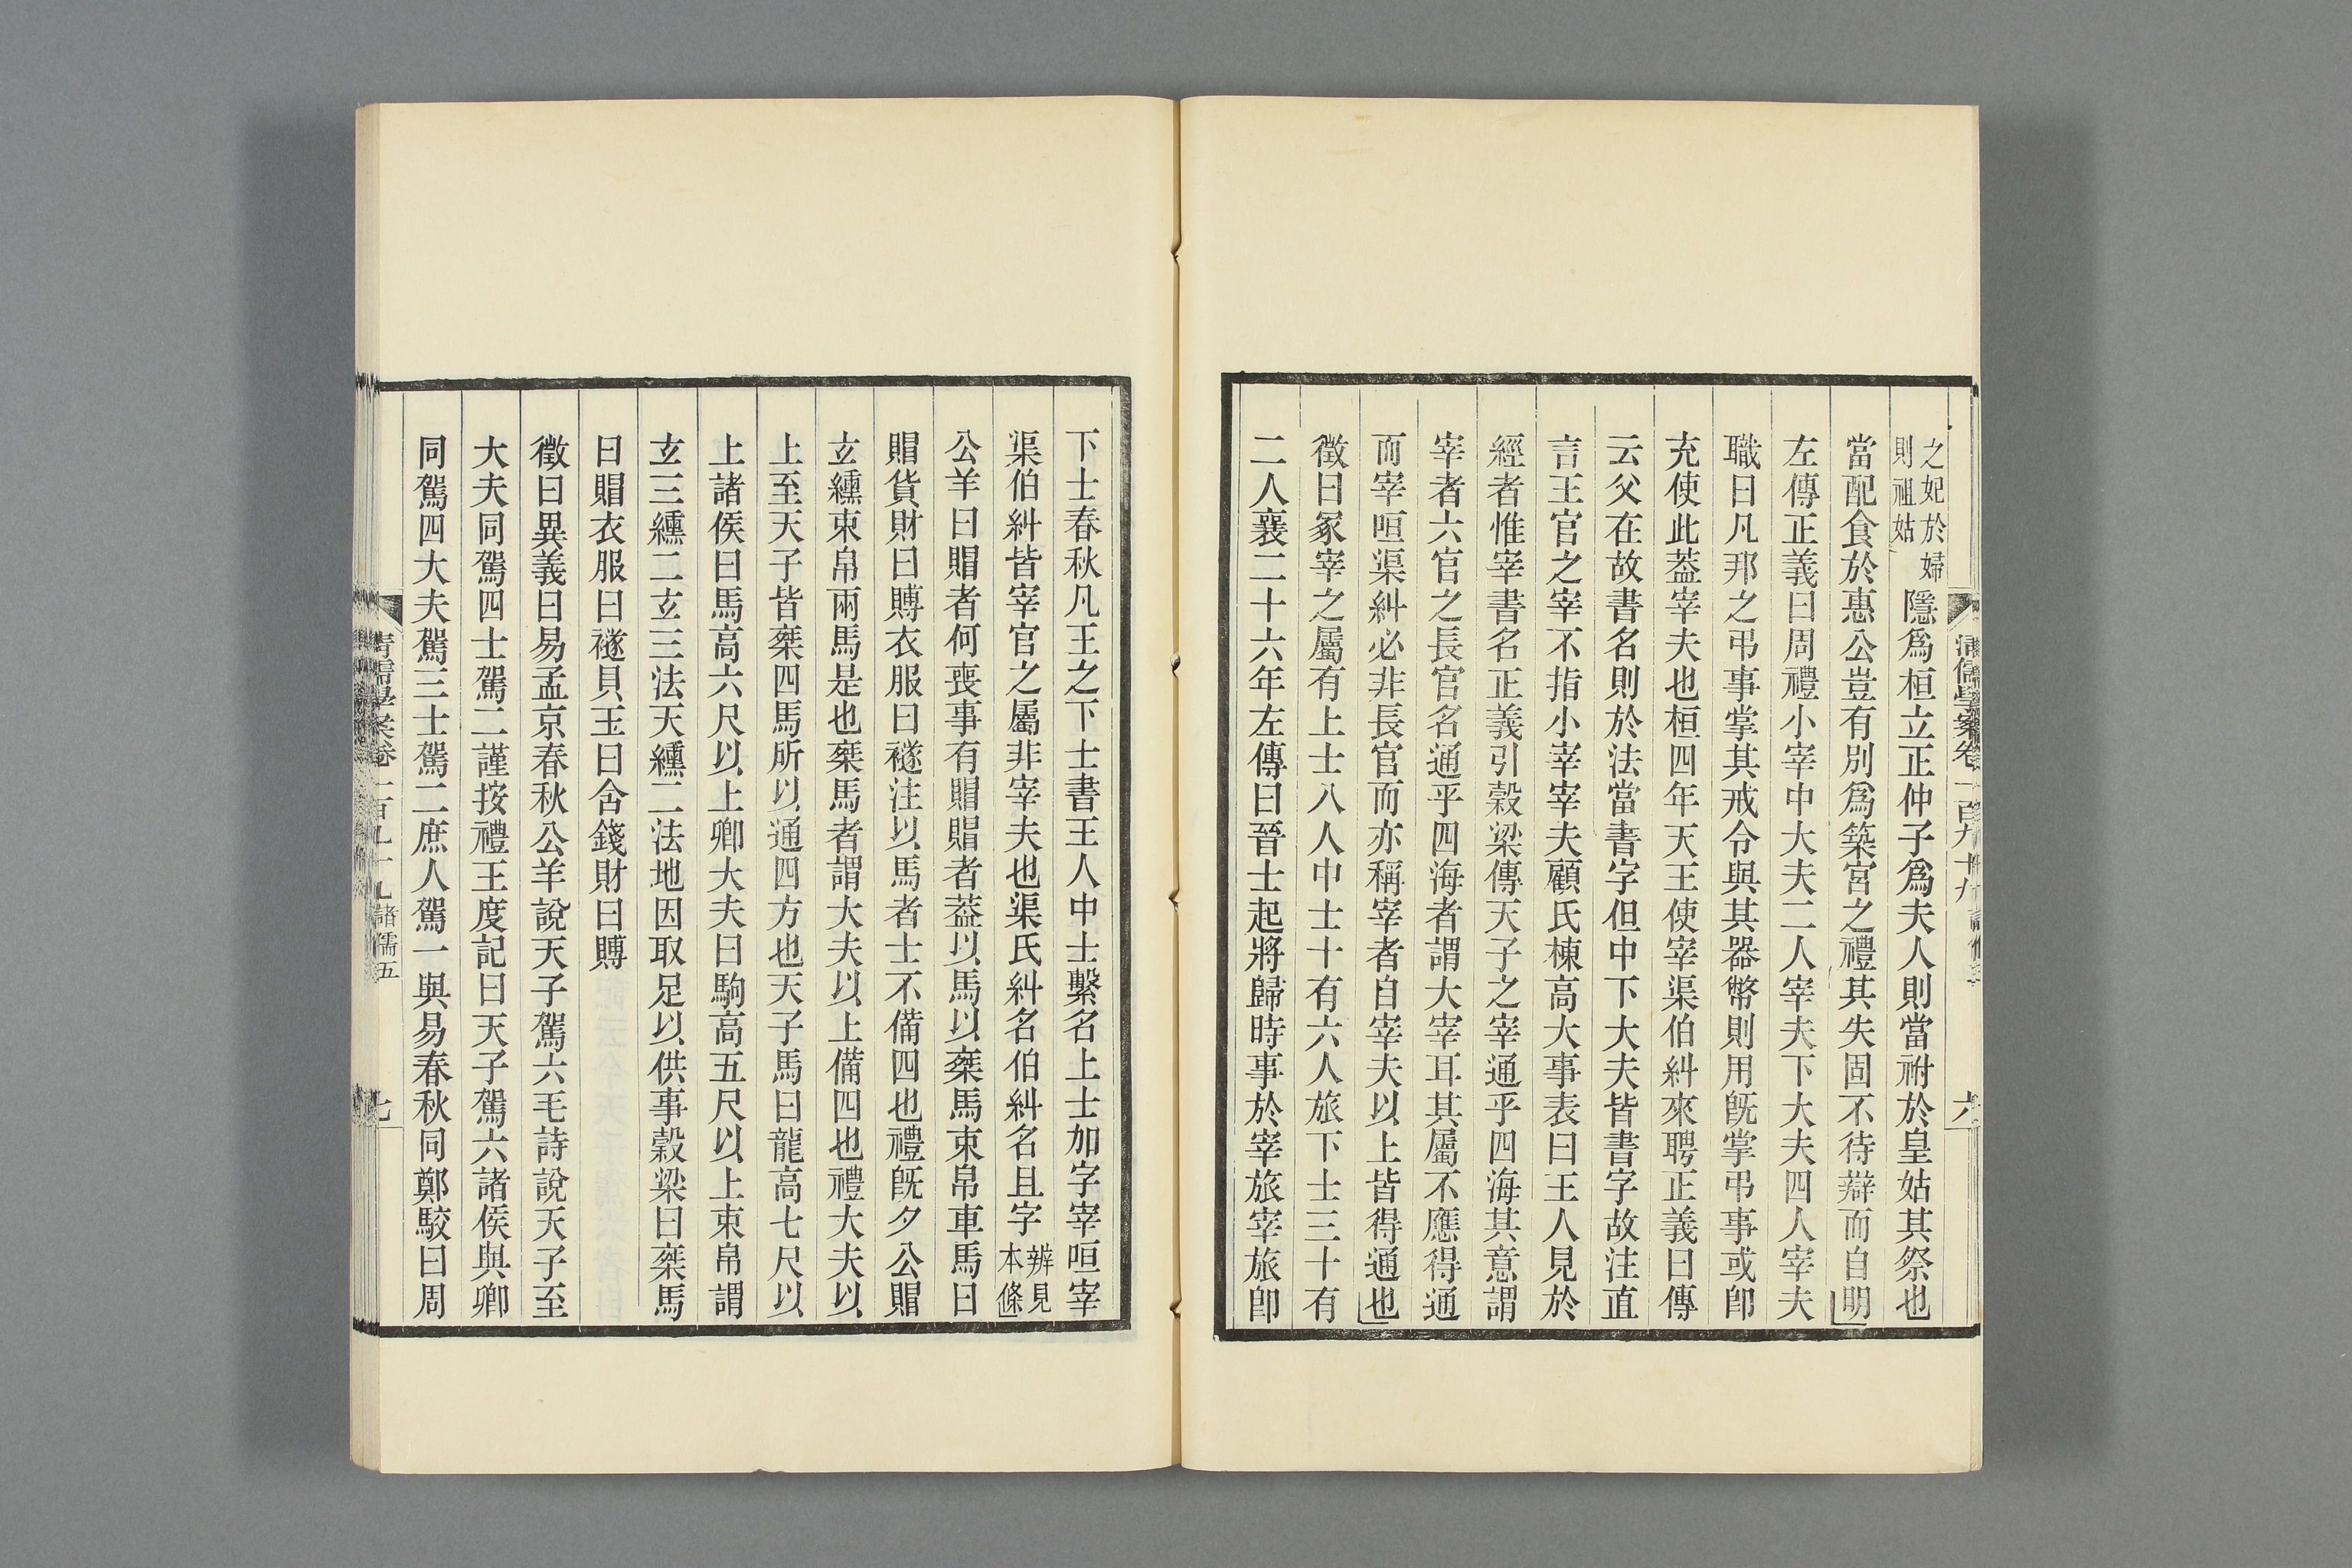 清儒學案卷一百九十九
六
之妃於婦
則祖姑
隱爲桓立正仲子爲夫人則當祔於皇姑其祭也
當配食於惠公豈有別爲築宮之禮其失固不待辯而自明
左傳正義曰周禮小宰中大夫二人宰夫下大夫四人宰夫
職曰凡邦之弔事掌其戒令與其器幣則用旣掌弔事或卽
充使此葢宰夫也桓四年天王使宰渠伯糾來聘正義曰傳
云父在故書名則於法當書字但中下大夫皆書字故注直
言王官之宰不指小宰宰夫顧氏棟高大事表曰王人見於
經者惟宰書名正義引穀梁傳天子之宰通乎四海其意謂
宰者六官之長官名通乎四海者謂大宰耳其屬不應得通
而宰咺渠糾必非長官而亦稱宰者自宰夫以上皆得通也
徵曰冢宰之屬有上士八人中士十有六人旅下士三十有
二人襄二十六年左傳曰晉士起將歸時事於宰旅宰旅卽
下士春秋凡王之下士書王人中士繫名上士加字宰咺宰
渠伯糾皆宰官之屬非宰夫也渠氏糾名伯糾名且字
辨見
本條
公羊曰賵者何喪事有賵賵者葢以馬以椉馬束帛車馬曰
賵貨財曰賻衣服曰襚注以馬者士不備四也禮旣夕公賵
玄纁束帛兩馬是也椉馬者謂大夫以上備四也禮大夫以
上至天子皆椉四馬所以通四方也天子馬曰龍高七尺以
上諸侯曰馬高六尺以上卿大夫曰駒高五尺以上束帛謂
玄三纁二玄三法天纁二法地因取足以供事穀梁曰椉馬
曰賵衣服曰襚貝玉曰含錢財曰賻
徵曰異義曰易孟京春秋公羊說天子駕六毛詩說天子至
大夫同駕四士駕二謹按禮王度記曰天子駕六諸侯與卿
同駕四大夫駕三士駕二庶人駕一與易春秋同鄭駮曰周
清儒學案卷一百九十九 諸儒五
七